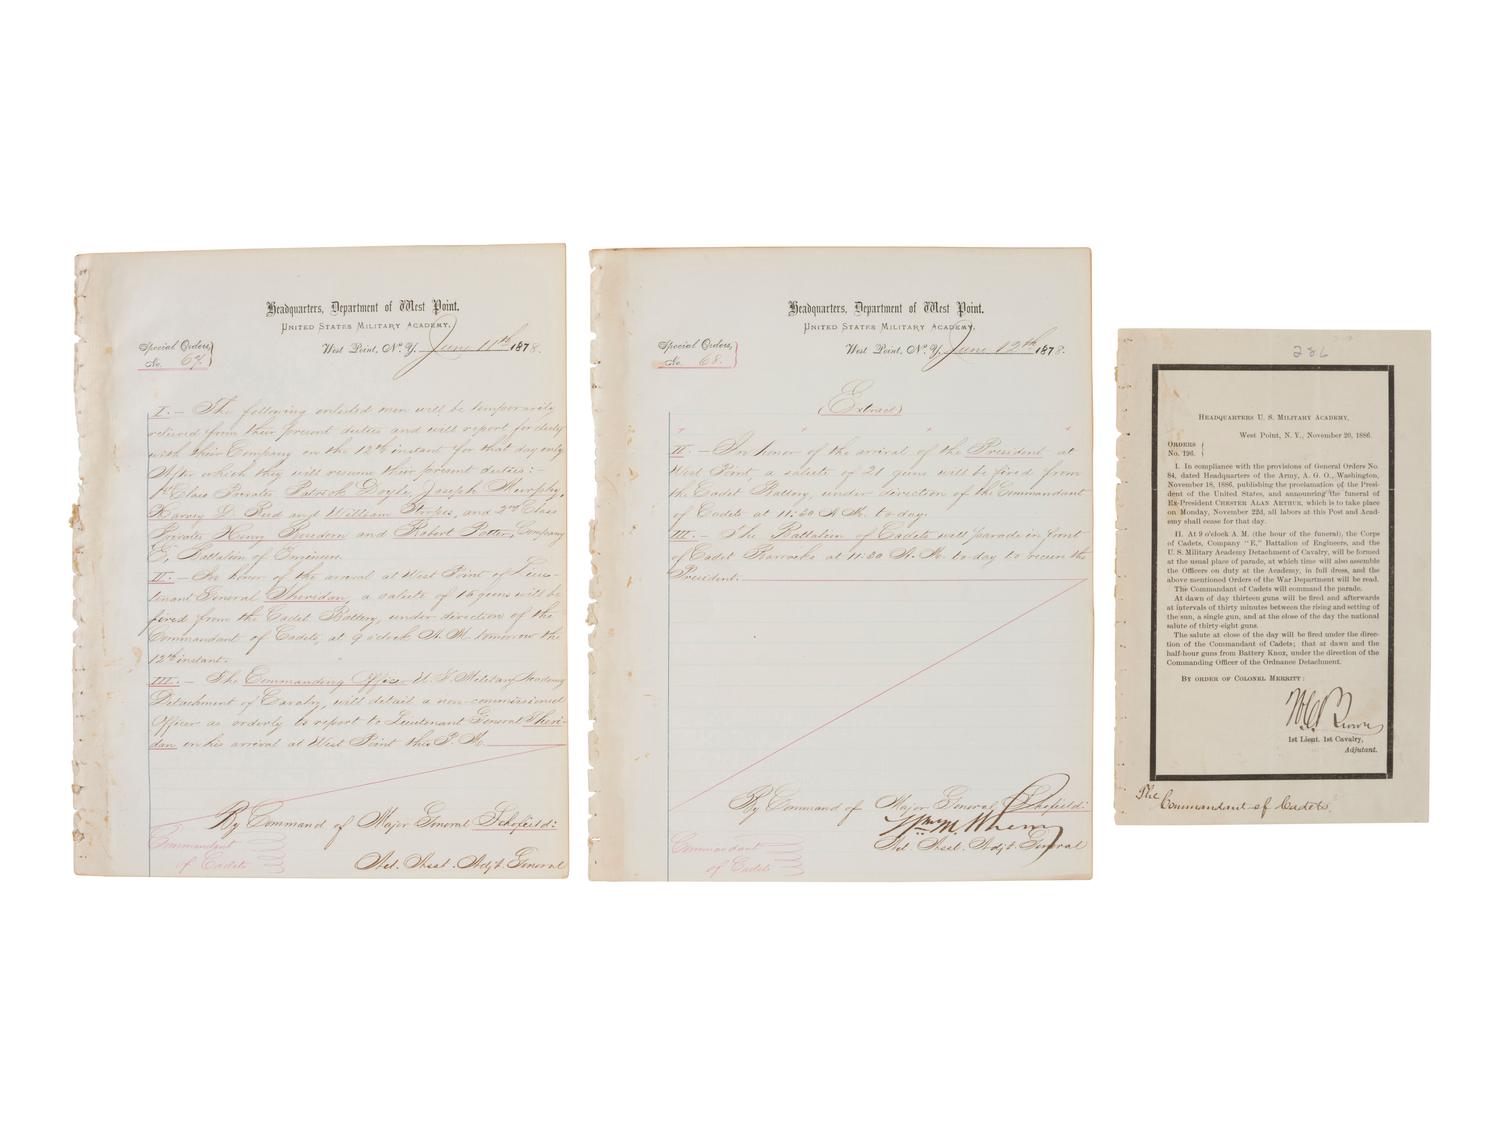 Headquarters, Department of West Point.
United States Military Academy,
Special Orders,
No. 67.
West Point, N. Y. June 11th 1878.
I. — The following enlisted men will be temporarily
relieved from their present duties and will report for duty
with their Company on the 12th instant for that day only
After which they will resume their present duties: —
1st Class Privates Patrick Doyle, Joseph Murphy,
Harvey D. Reed and William Stripes, and 2nd Class
Privates Henry and Robert Potter, Company
E, Battalion of Engineers.
II. — In honor of the arrival at West Point of Lieu-
tenant General Sheridan, a salute of 15 guns will be
fired from the Cadet Battery, under direction of the
Commandant of Cadets, at 9 o'clock A. M. tomorrow the
12th instant.
III. — The Commanding Officer U. S. Military Academy
Detachment of Cavalry, will detail a non-commissioned
Officer as orderly to report to Lieutenant General Sheri-
dan on his arrival at West Point this P. M.
By Command of Major General Schofield:
Commandant
of Cadets
Act. Asst. Adj't. General
Headquarters, Department of West Point.
United States Military Academy,
Special Orders,
No. 68.
West Point, N. Y. June 12th 1878.
(Extract)
II. — In honor of the arrival of the President at
West Point, a salute of 21 guns will be fired from
the Cadet Battery, under direction of the Commandant
of Cadets at 11:20 A. M. to-day.
III. — The Battalion of Cadets will parade in front
of Cadet Barracks at 11:20 A. M. to-day to receive the
President.
By Command of Major General Schofield:
Wm. M. Wherry
Commandant
of Cadets
Act. Asst. Adj't. General
286
Headquarters U. S. Military Academy,
West Point, N. Y., November 20, 1886.
Orders
No. 196.
I. In compliance with the provisions of General Orders No.
84, dated Headquarters of the Army, A. G. O., Washington,
November 18, 1886, publishing the proclamation of the Presi-
dent of the United States, and announcing the funeral of
Ex-President CHESTER ALAN ARTHUR, which is to take place
on Monday, November 22d, all labors at this Post and Acad-
emy shall cease for that day.
II. At 9 o'clock A. M. (the hour of the funeral), the Corps
of Cadets, Company "E," Battalion of Engineers, and the
U. S. Military Academy Detachment of Cavalry, will be formed
at the usual place of parade, at which time will also assemble
the Officers on duty at the Academy, in full dress, and the
above mentioned Orders of the War Department will be read.
The Commandant of Cadets will command the parade.
At dawn of day thirteen guns will be fired and afterwards
at intervals of thirty minutes between the rising and setting of
the sun, a single gun, and at the close of the day the national
salute of thirty-eight guns.
The salute at close of the day will be fired under the direc-
tion of the Commandant of Cadets; that at dawn and the
half-hour guns from Battery Knox, under the direction of the
Commanding Officer of the Ordnance Detachment.
By order of Colonel Merritt:
W. C. Brown
1st Lieut. 1st Cavalry,
Adjutant.
The
Commandant of Cadets.